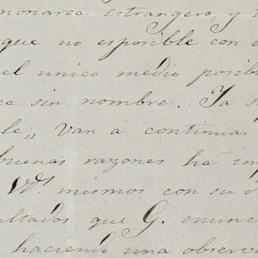 monarca estrangero, y
que no esposible con
el unico medio posib
sin nombre. Ya s
le,, van á continuar
buenas razones ha im
V.s mismos con su
ultados que G. enunc
haciendo una observ